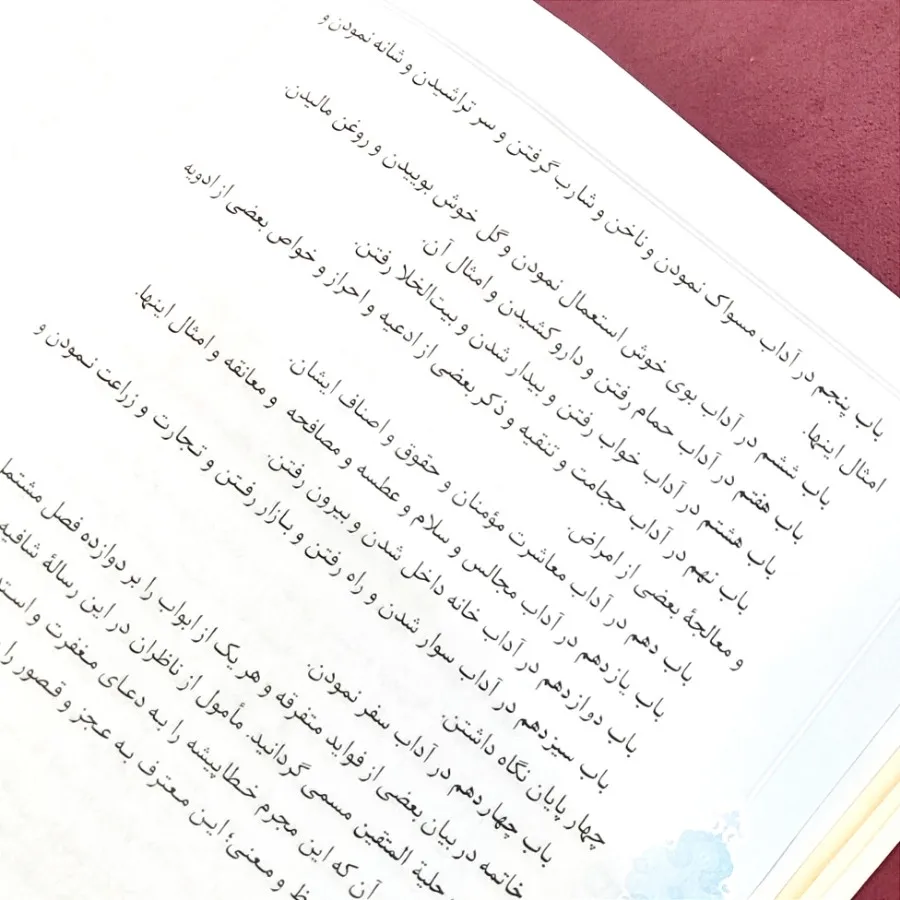 باب پنجم در آداب مسواک نمودن و ناخن و شارب گرفتن و سر تراشیدن و شانه نمودن و
امثال اینها.
باب ششم در آداب بوی خوش استعمال نمودن و گل خوش بوییدن و روغن مالیدن.
باب هفتم در آداب حمام رفتن و دارو کشیدن و امثال آن.
باب هشتم در آداب خواب رفتن و بیدار شدن و بیت‌الخلا رفتن.
باب نهم در آداب حجامت و تنقیه و ذکر بعضی از ادعیه و احراز و خواص بعضی از ادویه
و معالجۀ بعضی از امراض.
باب دهم در آداب معاشرت مؤمنان و حقوق و اصناف ایشان.
باب یازدهم در آداب مجالس و سلام و عطسه و مصافحه و معانقه و امثال اینها.
باب دوازدهم در آداب خانه داخل شدن و بیرون رفتن.
باب سیزدهم در آداب سوار شدن و راه رفتن و بازار رفتن و تجارت و زراعت نمودن و
چهار پایان نگاه داشتن.
باب چهاردهم در آداب سفر نمودن.
خاتمه در بیان بعضی از فواید متفرقه و هر یک از ابواب را بر دوازده فصل مشتمل
حلیة المتقین مسمی گردانید. مأمول از ناظران در این رسالۀ شافیه
آن که این مجرم خطاپیشه را به دعای مغفرت و
و معنی؛ این معترف به عجز و قصور را